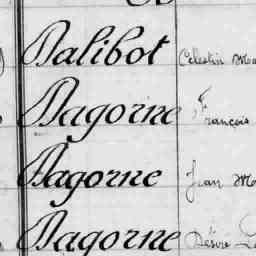 Dalibot Celestin
Dagorne François
Dagorne Jean M
Dagorne Désiré